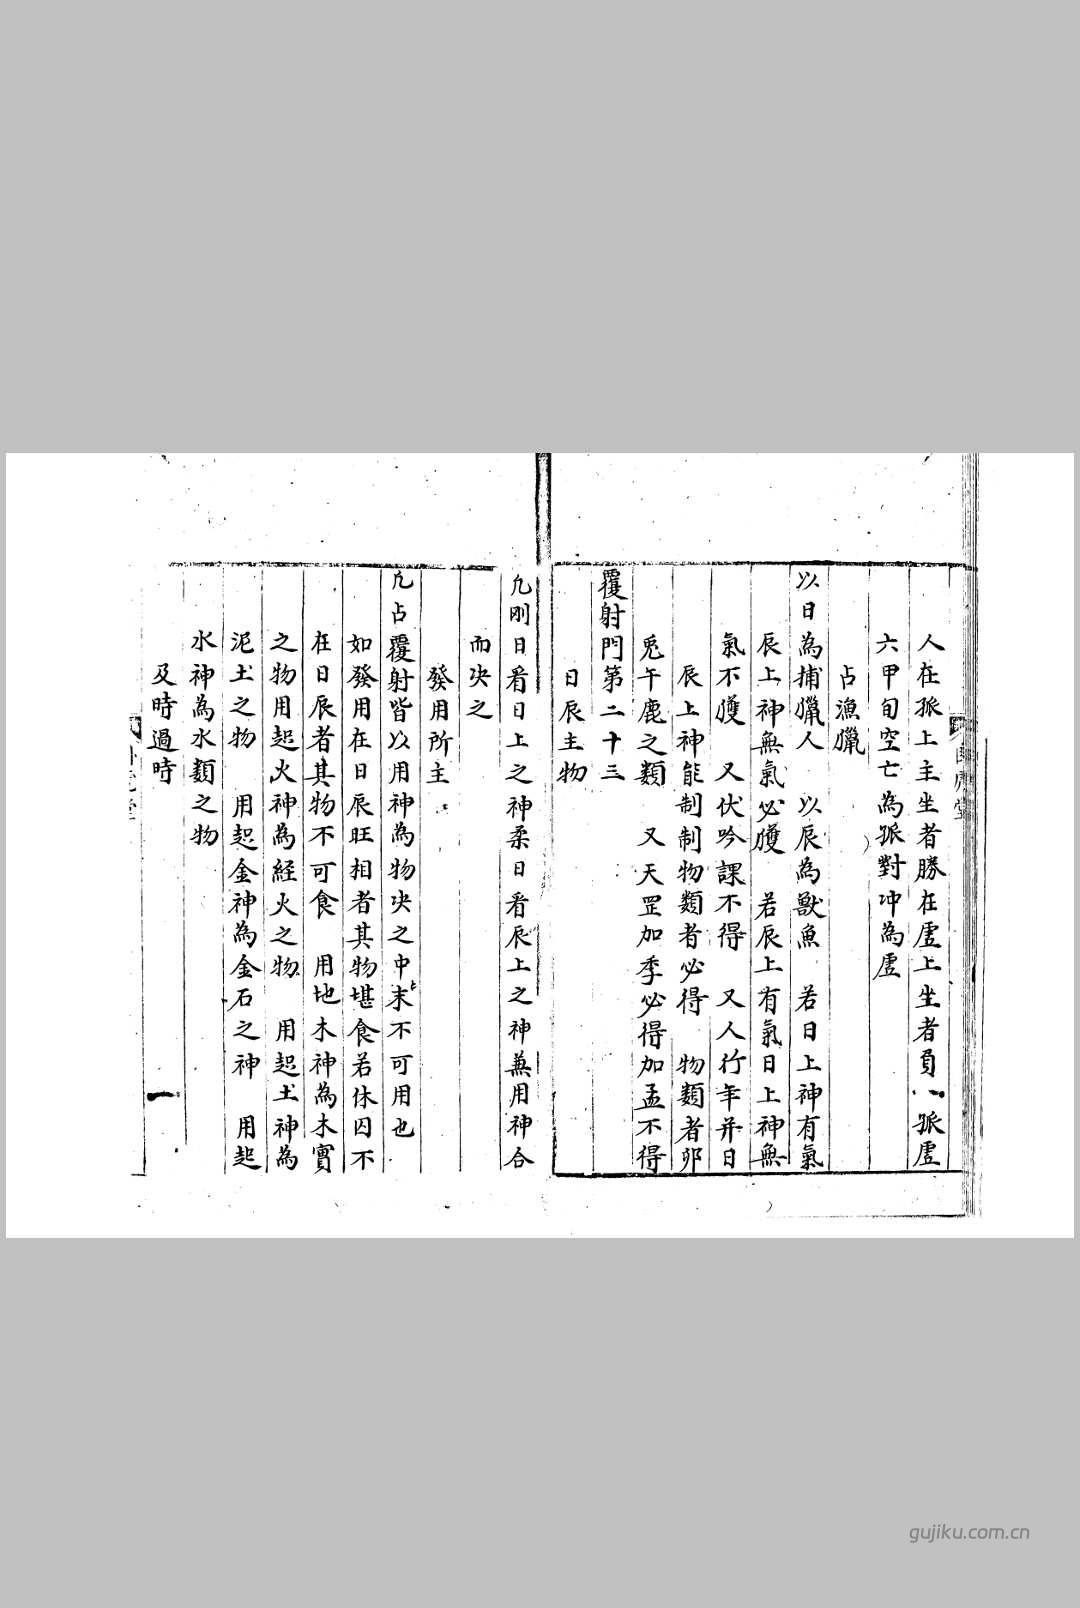 人在孤上主坐者勝在虛上坐者負 孤虛
六甲旬空亡為孤對冲為虛
占漁獵
以日為捕獵人 以辰為獸魚 若日上神有氣
辰上神無氣必獲 若辰上有氣日上神無
氣不獲 又伏吟課不得 又人行年并日
辰上神能制制物類者必得 物類者卯
兎午鹿之類 又天罡加季必得加孟不得
覆射門第二十三
日辰主物
凢剛日看日上之神柔日看辰上之神兼用神合
而决之
發用所主
凢占覆射皆以用神為物决之中末不可用也
如發用在日辰旺相者其物堪食若休囚不
在日辰者其物不可食 用地木神為木實
之物用起火神為経火之物 用起土神為
泥土之物 用起金神為金石之神 用起
水神為水類之物
及時過時
gujiku.com.cn